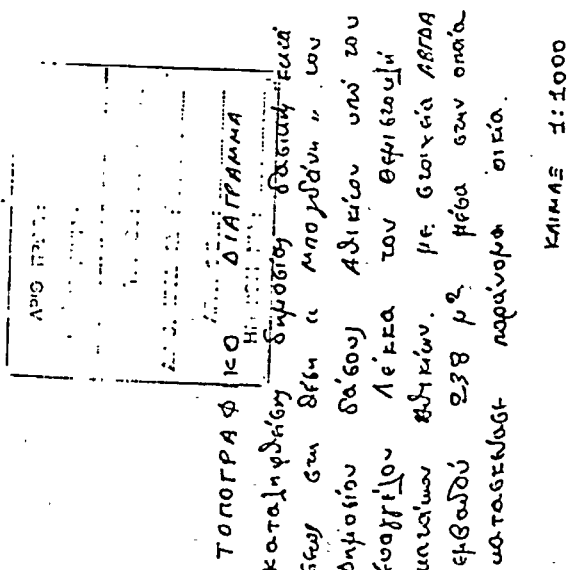 ΑΡΙΘ
ΤΟΠΟΓΡΑΦΙΚΟ ΔΙΑΓΡΑΜΜΑ
καταληφθείσης δημοσίας δασικής εκτά
σεως στη θέση « Μπογδάνη » του
δημοσίου δάσους Αθικίων υπό του
Ευαγγέλου Λέκκα του Θεμιστοκλή
κατοίκου Αθικίων. με στοιχεία ΑΒΓΔΑ
εμβαδού 238 μ² μέσα στην οποία
κατασκεύασε παράνομα οικία.
ΚΛΙΜΑΞ 1:1000